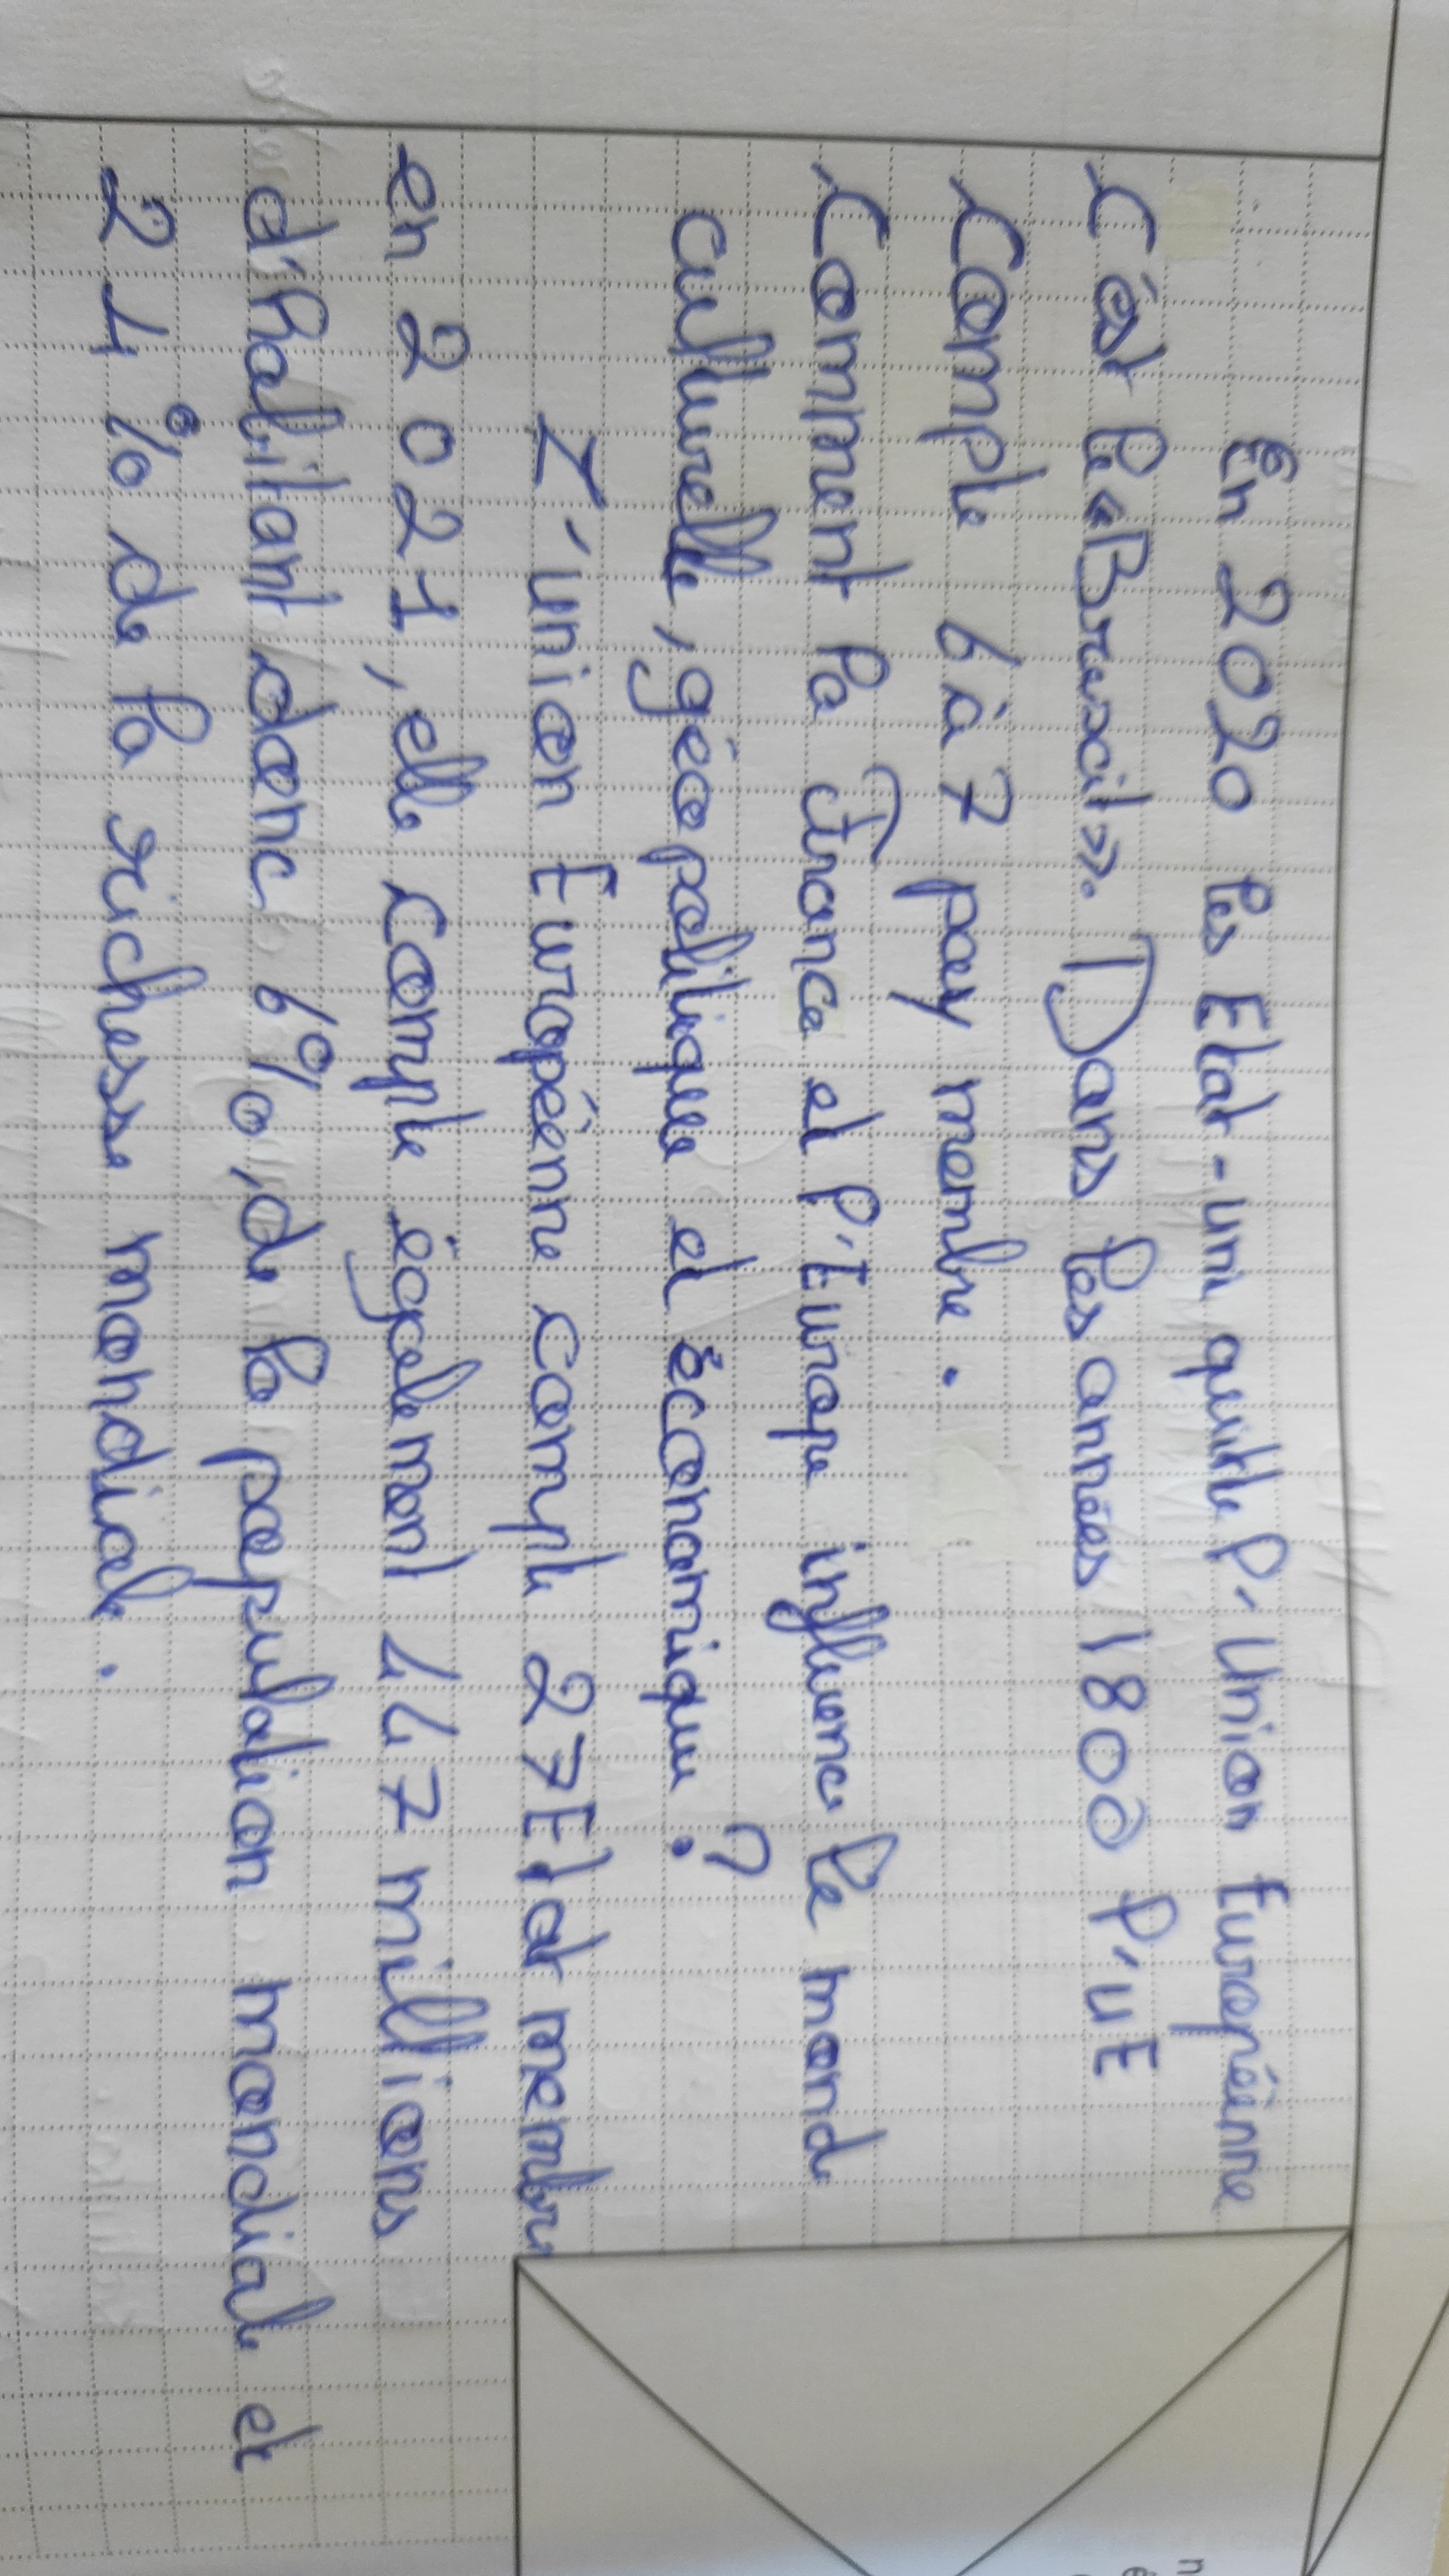 En 2020 les Etat-uni quitte l'Union Européenne
C'est le «Brexcil». Dans les années 1800 l'UE
Compte 6 à 7 pay membre.
Comment la France et l'Europe influence le monde
culturelle, géopolitique et économique ?
L'union Européenne compte 27 Etat membre
en 2021, elle compte également 447 millions
d'habitant donc 6%, de la population mondiale et
21 % de la richesse mondiale.